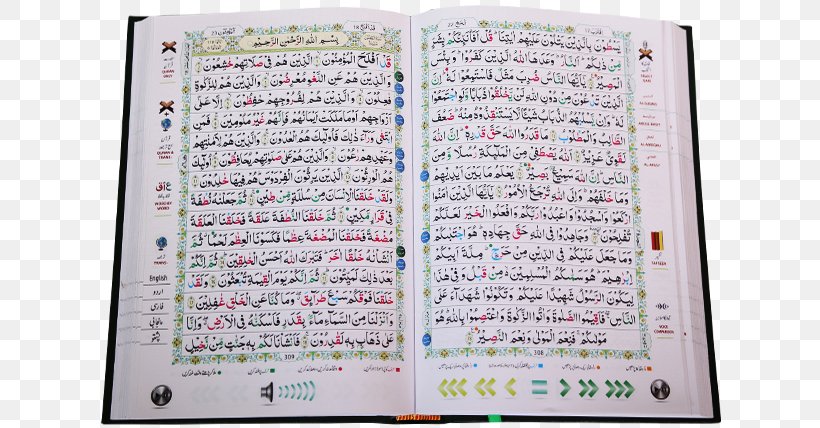 يَسْطُوْنَ بِالَّذِيْنَ يَتْلُوْنَ عَلَيْهِمْ اٰيٰتِنَا قُلْ اَفَاُنَبِّئُكُمْ بِشَرٍّ
مِّنْ ذٰلِكُمْ اَلنَّارُ وَعَدَهَا اللّٰهُ الَّذِيْنَ كَفَرُوْا وَبِئْسَ
الْمَصِيْرُ يٰاَيُّهَا النَّاسُ ضُرِبَ مَثَلٌ فَاسْتَمِعُوْا لَهٗ اِنَّ
الَّذِيْنَ تَدْعُوْنَ مِنْ دُوْنِ اللّٰهِ لَنْ يَّخْلُقُوْا ذُبَابًا وَّلَوِ اجْتَمَعُوْا
لَهٗ وَاِنْ يَّسْلُبْهُمُ الذُّبَابُ شَيْئًا لَّا يَسْتَنْقِذُوْهُ مِنْهُ ضَعُفَ
الطَّالِبُ وَالْمَطْلُوْبُ مَا قَدَرُوا اللّٰهَ حَقَّ قَدْرِهٖ اِنَّ اللّٰهَ
لَقَوِيٌّ عَزِيْزٌ اَللّٰهُ يَصْطَفِيْ مِنَ الْمَلٰئِكَةِ رُسُلًا وَّمِنَ
النَّاسِ اِنَّ اللّٰهَ سَمِيْعٌ بَصِيْرٌ يَعْلَمُ مَا بَيْنَ اَيْدِيْهِمْ
وَمَا خَلْفَهُمْ وَاِلَى اللّٰهِ تُرْجَعُ الْاُمُوْرُ يٰاَيُّهَا الَّذِيْنَ اٰمَنُوا
ارْكَعُوْا وَاسْجُدُوْا وَاعْبُدُوْا رَبَّكُمْ وَافْعَلُوا الْخَيْرَ لَعَلَّكُمْ
تُفْلِحُوْنَ وَجَاهِدُوْا فِي اللّٰهِ حَقَّ جِهَادِهٖ هُوَ اجْتَبٰىكُمْ
وَمَا جَعَلَ عَلَيْكُمْ فِي الدِّيْنِ مِنْ حَرَجٍ مِلَّةَ اَبِيْكُمْ
اِبْرٰهِيْمَ هُوَ سَمّٰىكُمُ الْمُسْلِمِيْنَ مِنْ قَبْلُ وَفِيْ هٰذَا
لِيَكُوْنَ الرَّسُوْلُ شَهِيْدًا عَلَيْكُمْ وَتَكُوْنُوْا شُهَدَاءَ عَلَى
النَّاسِ فَاَقِيْمُوا الصَّلٰوةَ وَاٰتُوا الزَّكٰوةَ وَاعْتَصِمُوْا بِاللّٰهِ هُوَ
مَوْلٰىكُمْ فَنِعْمَ الْمَوْلٰى وَنِعْمَ النَّصِيْرُ
308
بِسْمِ اللّٰهِ الرَّحْمٰنِ الرَّحِيْمِ
قَدْ اَفْلَحَ الْمُؤْمِنُوْنَ الَّذِيْنَ هُمْ فِيْ صَلَاتِهِمْ خٰشِعُوْنَ
وَالَّذِيْنَ هُمْ عَنِ اللَّغْوِ مُعْرِضُوْنَ وَالَّذِيْنَ هُمْ لِلزَّكٰوةِ
فٰعِلُوْنَ وَالَّذِيْنَ هُمْ لِفُرُوْجِهِمْ حٰفِظُوْنَ اِلَّا عَلٰى
اَزْوَاجِهِمْ اَوْ مَا مَلَكَتْ اَيْمَانُهُمْ فَاِنَّهُمْ غَيْرُ مَلُوْمِيْنَ فَمَنِ
ابْتَغٰى وَرَاءَ ذٰلِكَ فَاُولٰئِكَ هُمُ الْعٰدُوْنَ وَالَّذِيْنَ هُمْ لِاَمٰنٰتِهِمْ
وَعَهْدِهِمْ رٰعُوْنَ وَالَّذِيْنَ هُمْ عَلٰى صَلَوٰتِهِمْ يُحَافِظُوْنَ اُولٰئِكَ
هُمُ الْوٰرِثُوْنَ الَّذِيْنَ يَرِثُوْنَ الْفِرْدَوْسَ هُمْ فِيْهَا خٰلِدُوْنَ
وَلَقَدْ خَلَقْنَا الْاِنْسَانَ مِنْ سُلٰلَةٍ مِّنْ طِيْنٍ ثُمَّ جَعَلْنٰهُ نُطْفَةً
فِيْ قَرَارٍ مَّكِيْنٍ ثُمَّ خَلَقْنَا النُّطْفَةَ عَلَقَةً فَخَلَقْنَا الْعَلَقَةَ
مُضْغَةً فَخَلَقْنَا الْمُضْغَةَ عِظٰمًا فَكَسَوْنَا الْعِظٰمَ لَحْمًا ثُمَّ
اَنْشَاْنٰهُ خَلْقًا اٰخَرَ فَتَبٰرَكَ اللّٰهُ اَحْسَنُ الْخٰلِقِيْنَ ثُمَّ اِنَّكُمْ
بَعْدَ ذٰلِكَ لَمَيِّتُوْنَ ثُمَّ اِنَّكُمْ يَوْمَ الْقِيٰمَةِ تُبْعَثُوْنَ وَلَقَدْ
خَلَقْنَا فَوْقَكُمْ سَبْعَ طَرَائِقَ وَمَا كُنَّا عَنِ الْخَلْقِ غٰفِلِيْنَ
وَاَنْزَلْنَا مِنَ السَّمَاءِ مَاءً بِقَدَرٍ فَاَسْكَنّٰهُ فِي الْاَرْضِ وَاِنَّا
عَلٰى ذَهَابٍ بِهٖ لَقٰدِرُوْنَ فَاَنْشَاْنَا لَكُمْ بِهٖ جَنّٰتٍ مِّنْ نَّخِيْلٍ
309
QURAN ONLY
QURAN & TRANS.
WORD BY WORD
TRANS.
English
اردو
فارسی
پشتو
VOICE COMPARISON